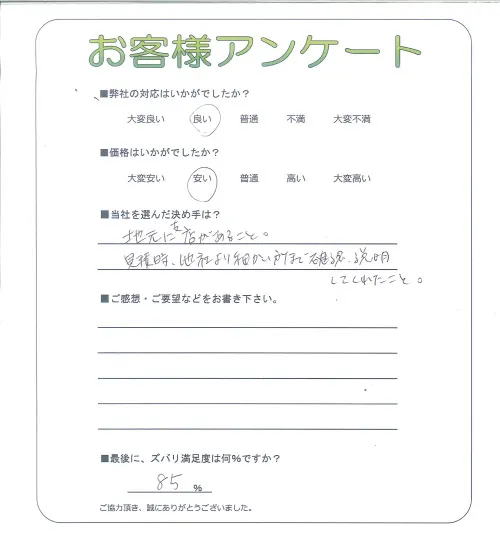 お客様アンケート
■弊社の対応はいかがでしたか?
大変良い 良い 普通 不満 大変不満
■価格はいかがでしたか?
大変安い 安い 普通 高い 大変高い
■当社を選んだ決め手は?
地元に支店があること。
見積時、他社より細かい所まで確認、説明
してくれたこと。
■ご感想・ご要望などをお書き下さい。
■最後に、ズバリ満足度は何%ですか?
85 %
ご協力頂き、誠にありがとうございました。